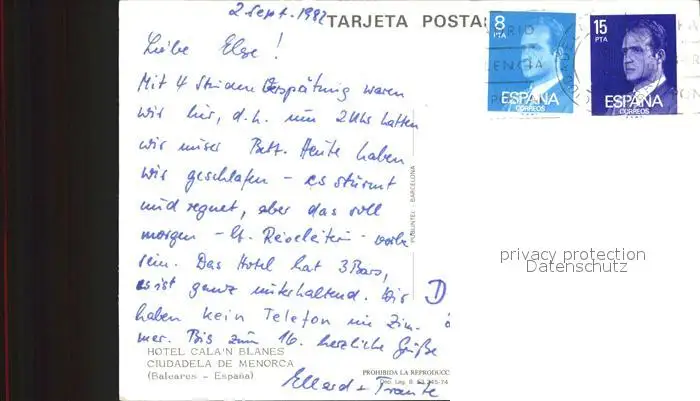 2. Sept. 1982
TARJETA POSTA
Liebe Else!
Mit 4 Stunden Verspätung waren
wir hier, d.h. um 2 Uhr hatten
wir unser Bett. Heute haben
wir geschlafen - es stürmt
und regnet, aber das soll
morgen - lt. Reiseleiterin - vorbei
sein. Das Hotel hat 3 Bars,
es ist ganz unterhaltend. Wir
haben kein Telefon im Zim-
mer. Bis zum 16. herzliche Grüße
HOTEL CALA'N BLANES
CIUDADELA DE MENORCA
(Baleares - España)
PROHIBIDA LA REPRODUCC
Dep. Leg. B.
8
PTA
ESPAÑA
CORREOS
15
PTA
ESPAÑA
CORREOS
PUBLINTEL - BARCELONA
D
privacy protection
Datenschutz